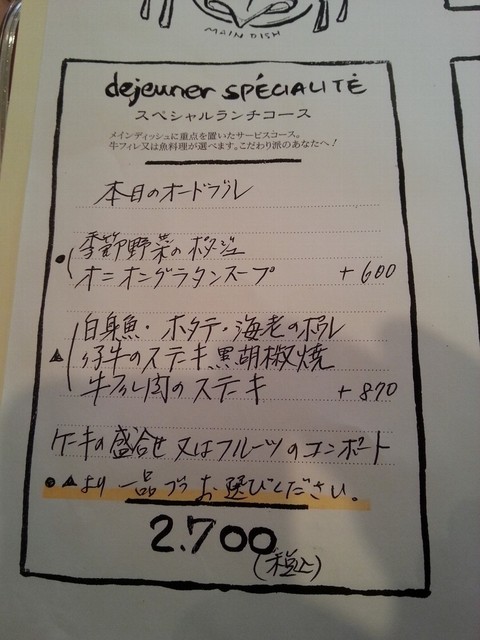 MAIN DISH
dejeuner SPÉCIALITÉ
スペシャルランチコース
メインディッシュに重点を置いたサービスコース。
牛フィレ又は魚料理が選べます。こだわり派のあなたへ!
本日のオードブル
● 季節野菜のポタージュ
オニオングラタンスープ +600
白身魚・ホタテ・海老のポワレ
▲ 仔牛のステキ黒胡椒焼
牛フィレ肉のステーキ +870
ケーキの盛合せ又はフルーツのコンポート
● ▲ より 一品づつ お選びください。
2.700
(税込)